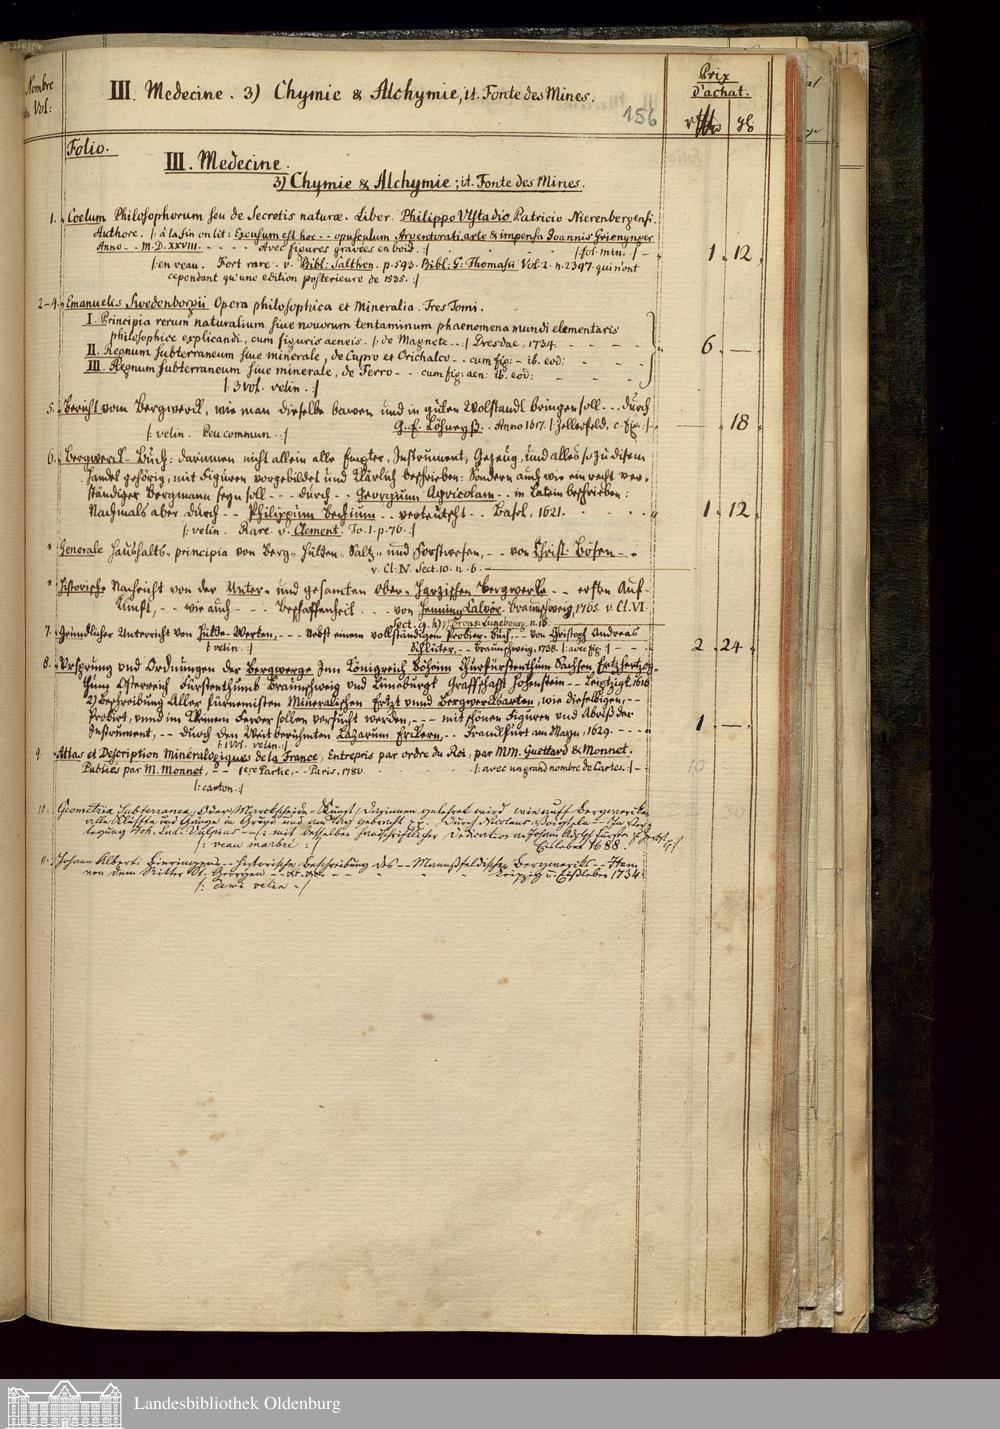 Nombre
Vol:
III. Medecine. 3) Chymie & Alchymie, it. Fonte des Mines.
156
Prix
d'achat.
Folio.
III. Medecine.
3) Chymie & Alchymie; it. Fonte des Mines.
1. Coelum Philosophorum seu de Secretis naturæ. Liber. Philippo Vlstadio Patricio Nierenbergensi.
Authore. /: à la fin on lit: Excusum est hoc -- opusculum Argentorati arte & impensa Joannis Grienynger
Anno -- M.D.XXVIII. - - - - - Avec figures gravées en bois. :/ /: fol. min. :/ -
/: en veau. Fort rare. v. Bibl: Salthen. p. 593. Bibl: G: Thomasii Vol. 2. n. 2397. qui n'ont
cependant qu'une edition posterieure de 1535. :/
1 12
2-4. Emanuelis Swedenborgii Opera philosophica et Mineralia. Tres Tomi.
I. Principia rerum naturalium sive novorum tentaminum phaenomena mundi elementaris
philosophice explicandi, cum figuris aeneis. /: de Magnete -- :/ Dresdae, 1734. - - - -
II. Regnum subterraneum sive minerale, de Cupro et Orichalco -- cum fig: - ib. eod: - - -
III. Regnum subterraneum sive minerale, de Ferro -- cum fig: aen: ib. eod: - - -
/: 3 Vol. velin. :/
6 —
5. Bericht vom Bergwerck, wie man dieselbe bawen und in guten Wolstandt bringen soll -- durch
G. E. Löhneyß. - Anno 1617. /: Zellerfeld, c. fig: :/
/: velin. Peu commun. :/
— 18
6. Bergwerck-Buch: darinnen nicht allein alle Empter, Instrument, Gezeug, und alles so zu disem
Handel gehörig, mit Figuren vorgebildet und klärlich beschrieben: Sondern auch wie ein recht ver-
ständiger Bergmann seyn soll --- durch -- Georgium Agricolam -- in Latein beschrieben:
Nachmals aber durch -- Philippum Bechium -- verteutscht -- Basel, 1621.
/: velin. Rare v. Clement. To. 1. p. 76. :/
1 12
* Generale Haushalts-principia von Berg-, Hütten-, Saltz-, und Forstwesen, -- von Christ: Bösen --
v. Cl. IV. Sect. 10. n. 6.
* Historische Nachricht von der Unter- und gesamten Ober-Harzischen Bergwerke -- ersten Auf-
kunft, -- wie auch --- Beschaffenheit --- von Henning Calvör. Braunschweig, 1765. v. Cl. VI.
Sect. 9. Luneburg. n. 16.
7. Gründlicher Unterricht von Hütte-Werken, --- Nebst einem vollständigem Probier-Buch, -- von Christoph Andreas
/: velin. :/ Schlüter, -- Braunschweig, 1738. /: avec fig. :/ ---
2 24
8. Ursprung und Ordnungen der Bergwerge Inn Königreich Böheim Churfürstenthum Sachsen Ertzhertzog-
thum Osterreich Fürstenthumb Braunschweig und Lüneburgk Graffschafft Hohenstein -- Leiptzigk. 1616.
2) Beschreibung Aller fürnemisten Mineralischen Ertzt unnd Bergwercksarten, wie dieselbigen, --
Probirt, unnd im kleinem Fewer sollen versucht werden, --- mit schönen Figuren und Abriß der
Instrument, -- durch den Weitberühmten Lazarum Erckern, -- Franckfurt am Mayn, 1629. ----
/: 1 Vol. velin. :/
1 —
9. Atlas et Description Mineralogiques de la France, Entrepris par ordre du Roi, par MM. Guettard & Monnet.
Publiés par M. Monnet, -- 1ere Partie, -- Paris, 1780. /: avec un grand nombre de Cartes. :/ -
/: carton. :/
10
10. Geometria Subterranea, Oder Marckscheide-Kunst, Darinnen gelehret wird wie auff Bergwercken
alle Klüffte und Gänge in Grube und am Tag gebracht -- Durch Nicolaus Voigteln --
/: mit desselben handschriftlicher Dedication
/: veau marbré :/ Eisleben 1688.
11. Johann Albert Bieringens -- Historische Beschreibung des -- Mannßfeldischen Bergwercks --
von dem Ritter St. Georgen -- Leipzig u. Eißleben 1734.
/: demi velin :/
Landesbibliothek Oldenburg